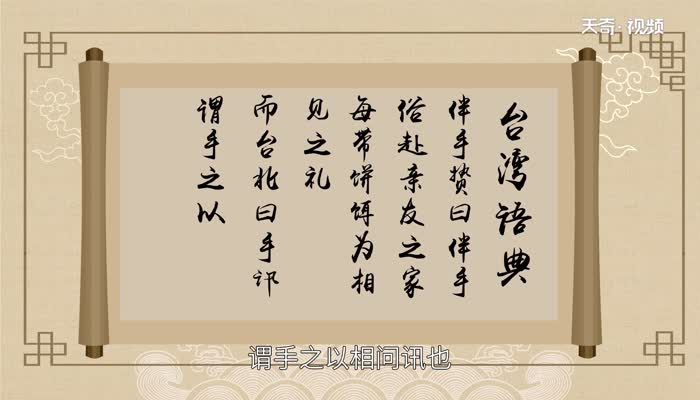 天奇·视频
台湾语典
伴手贽曰伴手
俗赴亲友之家
每带饼饵为相
见之礼
而台北曰手讯
谓手之以
谓手之以相问讯也